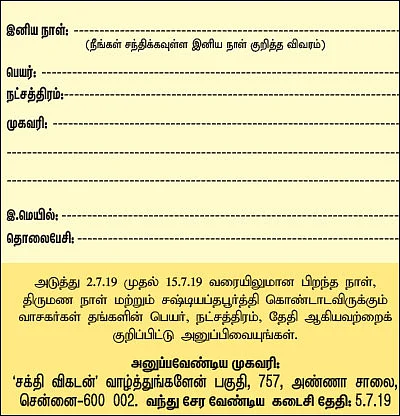 இனிய நாள்:
(நீங்கள் சந்திக்கவுள்ள இனிய நாள் குறித்த விவரம்)
பெயர்:
நட்சத்திரம்:
முகவரி:
இ.மெயில்:
தொலைபேசி:
அடுத்து 2.7.19 முதல் 15.7.19 வரையிலுமான பிறந்த நாள்,
திருமண நாள் மற்றும் சஷ்டியப்தபூர்த்தி கொண்டாடவிருக்கும்
வாசகர்கள் தங்களின் பெயர், நட்சத்திரம், தேதி ஆகியவற்றைக்
குறிப்பிட்டு அனுப்பிவையுங்கள்.
அனுப்பவேண்டிய முகவரி:
'சக்தி விகடன்' வாழ்த்துங்களேன் பகுதி, 757, அண்ணா சாலை,
சென்னை-600 002. வந்து சேர வேண்டிய கடைசி தேதி: 5.7.19